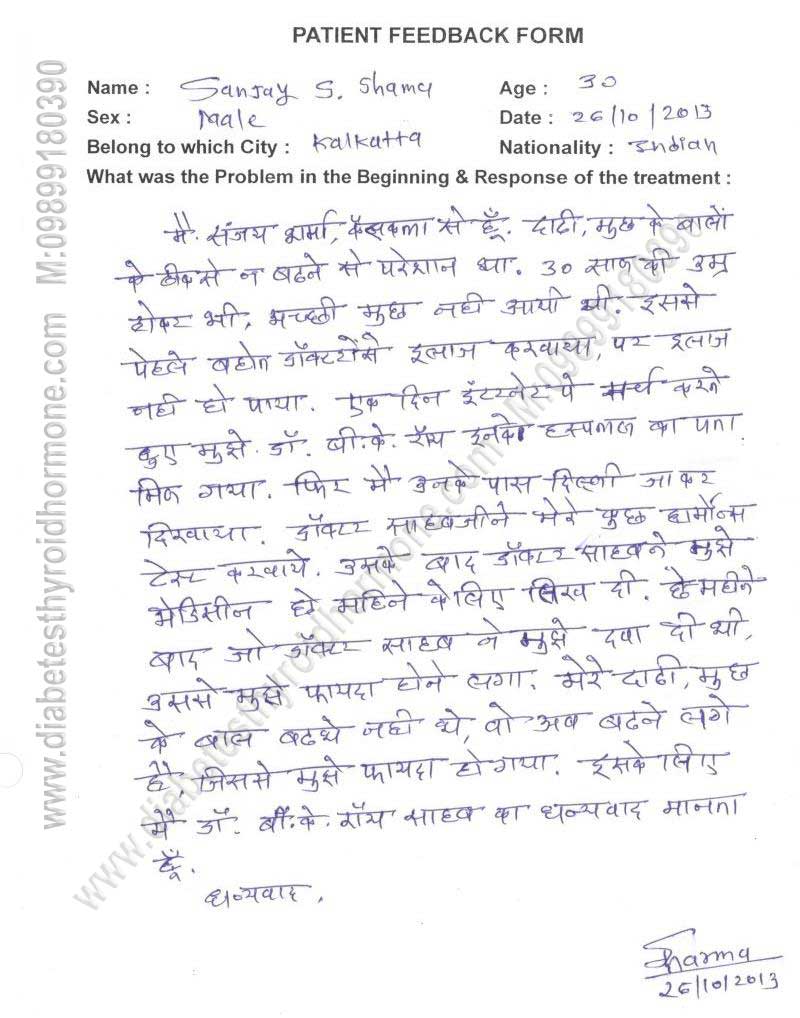 PATIENT FEEDBACK FORM
Name : Sanjay S. Shama Age : 30
Sex : Male Date : 26/10/2013
Belong to which City : Kalkatta Nationality : Indian
What was the Problem in the Beginning & Response of the treatment :
मै संजय शर्मा, कलकत्ता से हूँ. दाढी, मुछ के बालों
के ठीक से न बढने से परेशान था. 30 साल की उम्र
होकर भी, मच्छी मुछ नही आयी थी. इससे
पेहले बहोत डॉक्टरोंसे इलाज करवाया, पर इलाज
नही हो पाया. एक दिन इंटरनेट पे सर्च करते
हुए मुझे डॉ. बी.के. रॉय इनके हस्पताल का पता
मिल गया. फिर मै उनके पास दिल्ली जाकर
दिखवाया. डॉक्टर साहबजीने मेरे कुछ हार्मोन्स
टेस्ट करवाये. उसके बाद डॉक्टर साहब ने मुझे
मेडिसीन छे महिने के लिए लिख दी. छे महीने
बाद जो डॉक्टर साहब ने मुझे दवा दी थी,
उससे मुझे फायदा होने लगा. मेरे दाढी, मुछ
के बाल बढथे नही थे, वो अब बढने लगे
है, जिससे मुझे फायदा हो गया. इसके लिए
मै डॉ. बी.के. रॉय साहब का धन्यवाद मानता
हूँ.
धन्यवाद.
Sharma
26/10/2013
www.diabetesthyroidhormone.com M:09899180390
www.diabetesthyroidhormone.com M:09899180390